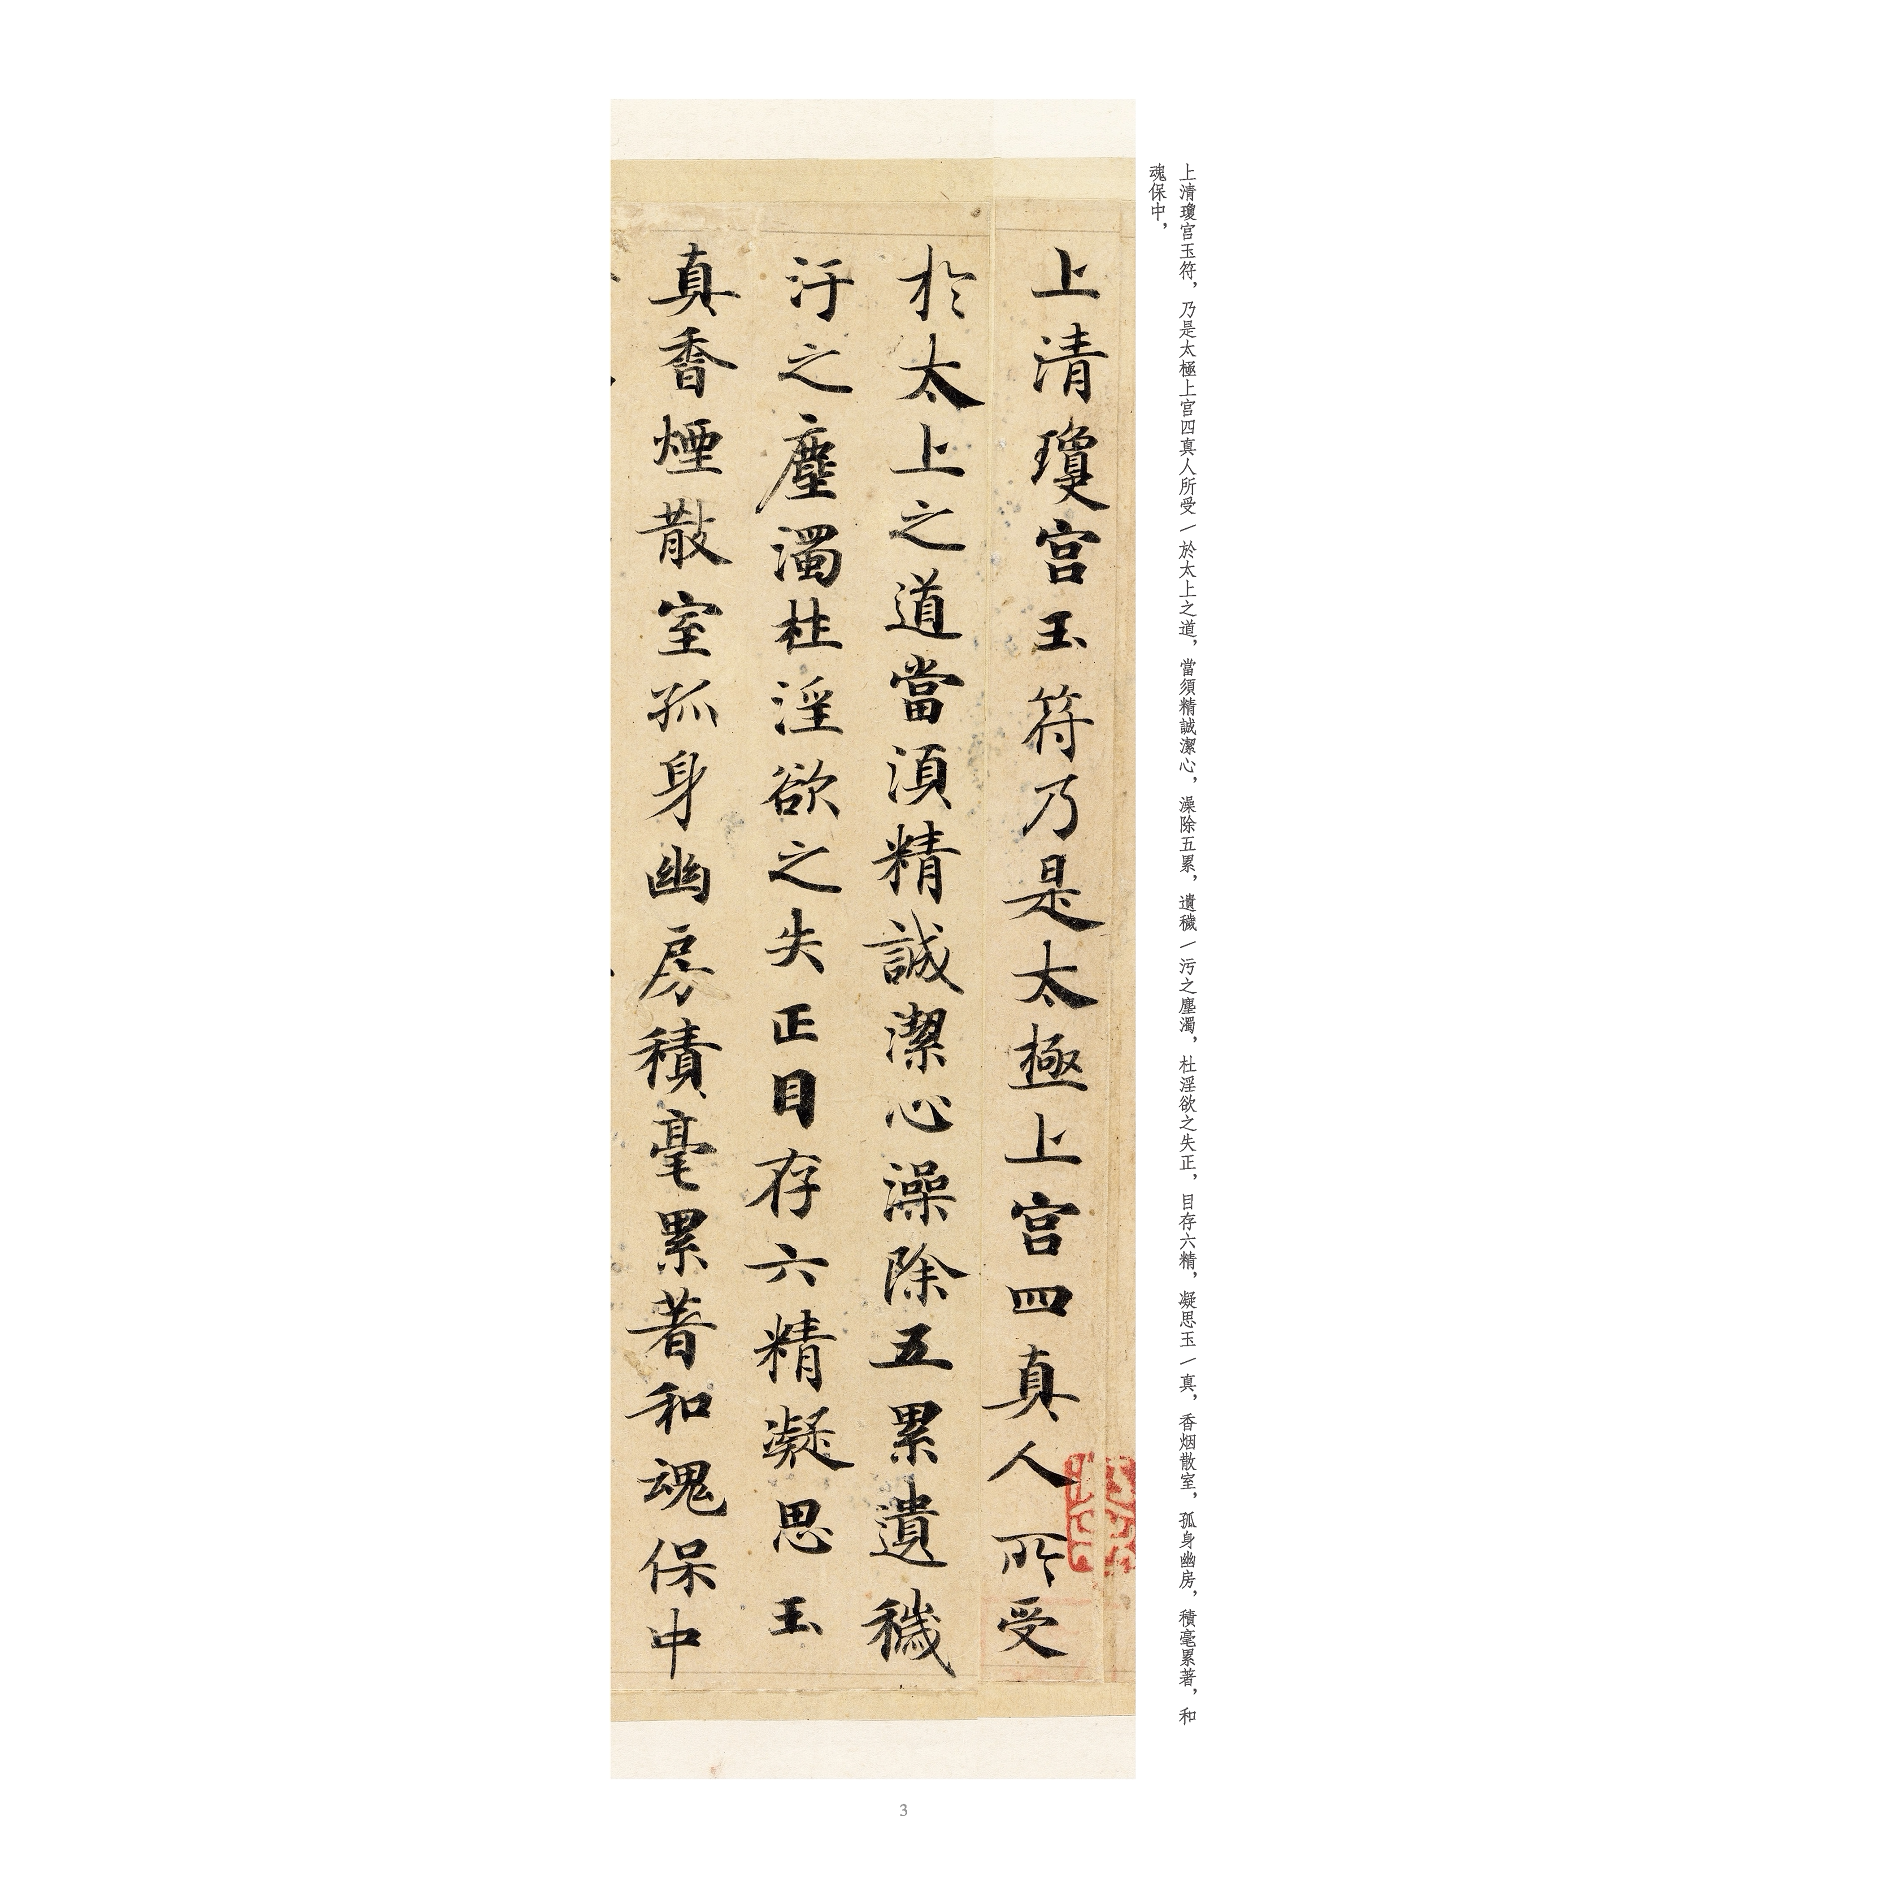 上清瓊宮玉符，乃是太極上宮四真人所受\於太上之道，當須精誠潔心，澡除五累，遺穢\污之塵濁，杜淫欲之失正，目存六精，凝思玉\真，香烟散室，孤身幽房，積毫累著，和
魂保中，
上清瓊宮玉符乃是太極上宮四真人所受
於太上之道當湏精誠潔心澡除五累遺穢
汙之塵濁杜淫欲之失正目存六精凝思玉
真香煙散室孤身幽房積毫累著和魂保中
3